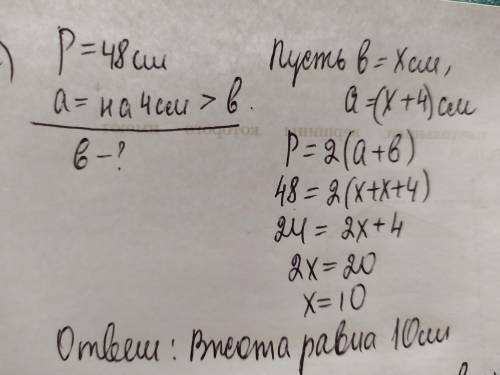 P = 48 см
a = на 4 см > b.
b - ?
Пусть b = x см,
a = (x + 4) см
P = 2(a + b)
48 = 2(x + x + 4)
24 = 2x + 4
2x = 20
x = 10
Ответ: Высота равна 10 см